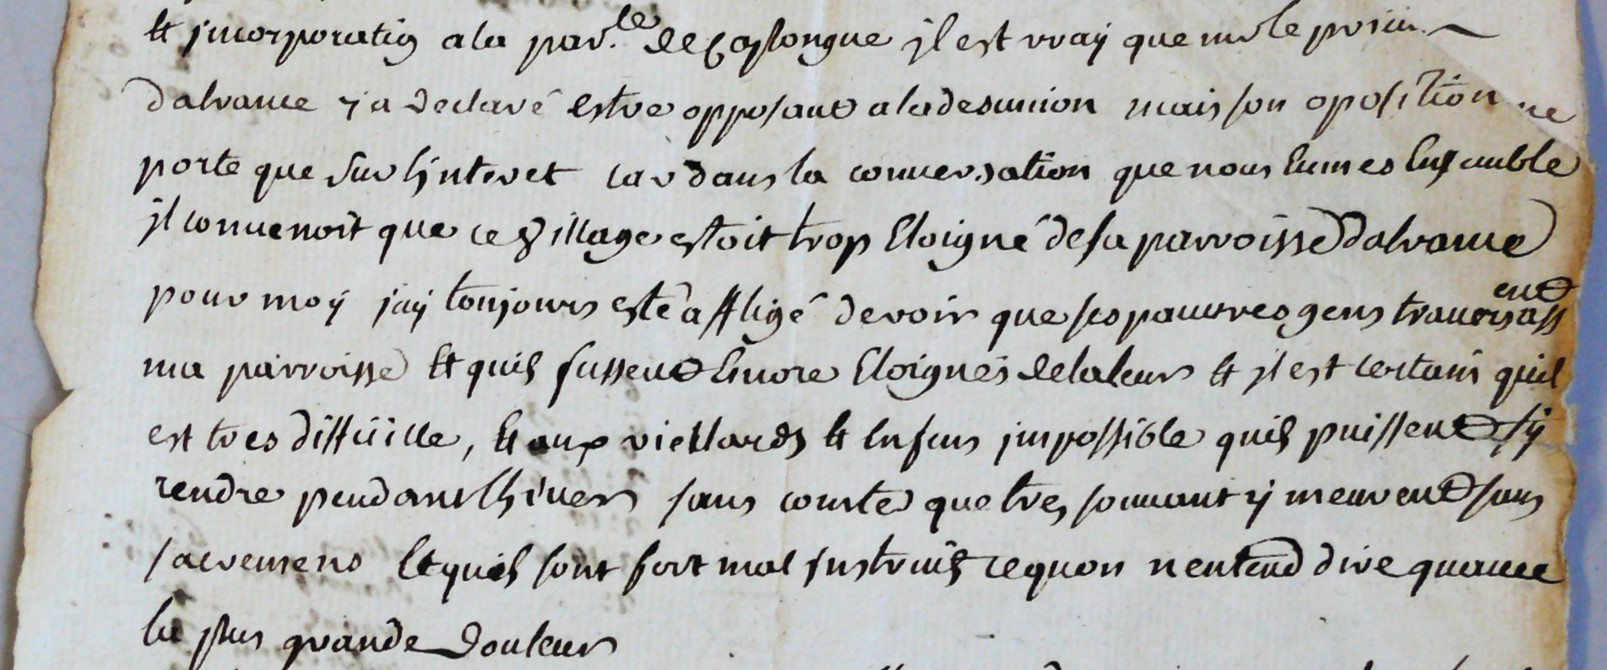 et jncorporation a la par.le de Caslongue jl est vray que mr le prieur
dalvance y a declaré estre opposant a la desunion mais son oposition ne
porte que sur linteret car dans la conversation que nous eumes ensemble
jl convenoit que ce village estoit trop eloigné de sa parroisse dalvance
pour moy jay toujours esté affligé de voir que ses pauvres gens traversassent
ma parroisse et quils fussent encore eloignés de la leur et jl est certain quil
est tres difficille, et aux vieillards et enfans jmpossible quils puissent sy
rendre pendant lhiver sans conste que tres souvant y meurent sans
sacremens et quils sont fort mal jnstruits ce quon n entend dire quavec
la plus grande douleur